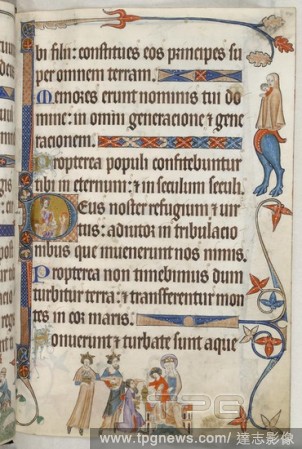 bi filii: constitues eos principes su
per omnem terram.
Memores erunt nominis tui do
mine: in omni generacione & gene
racionem.
Propterea populi confitebuntur
tibi in eternum: & in seculum seculi.
Deus noster refugium & uir
tus: adiutor in tribulacio
nibus que inuenerunt nos nimis.
Propterea non timebimus dum
turbitur terra: & transferentur mon
tes in cor maris.
Sonuerunt & turbate sunt aque
TPG
www.tpgnews.com/ 達志影像